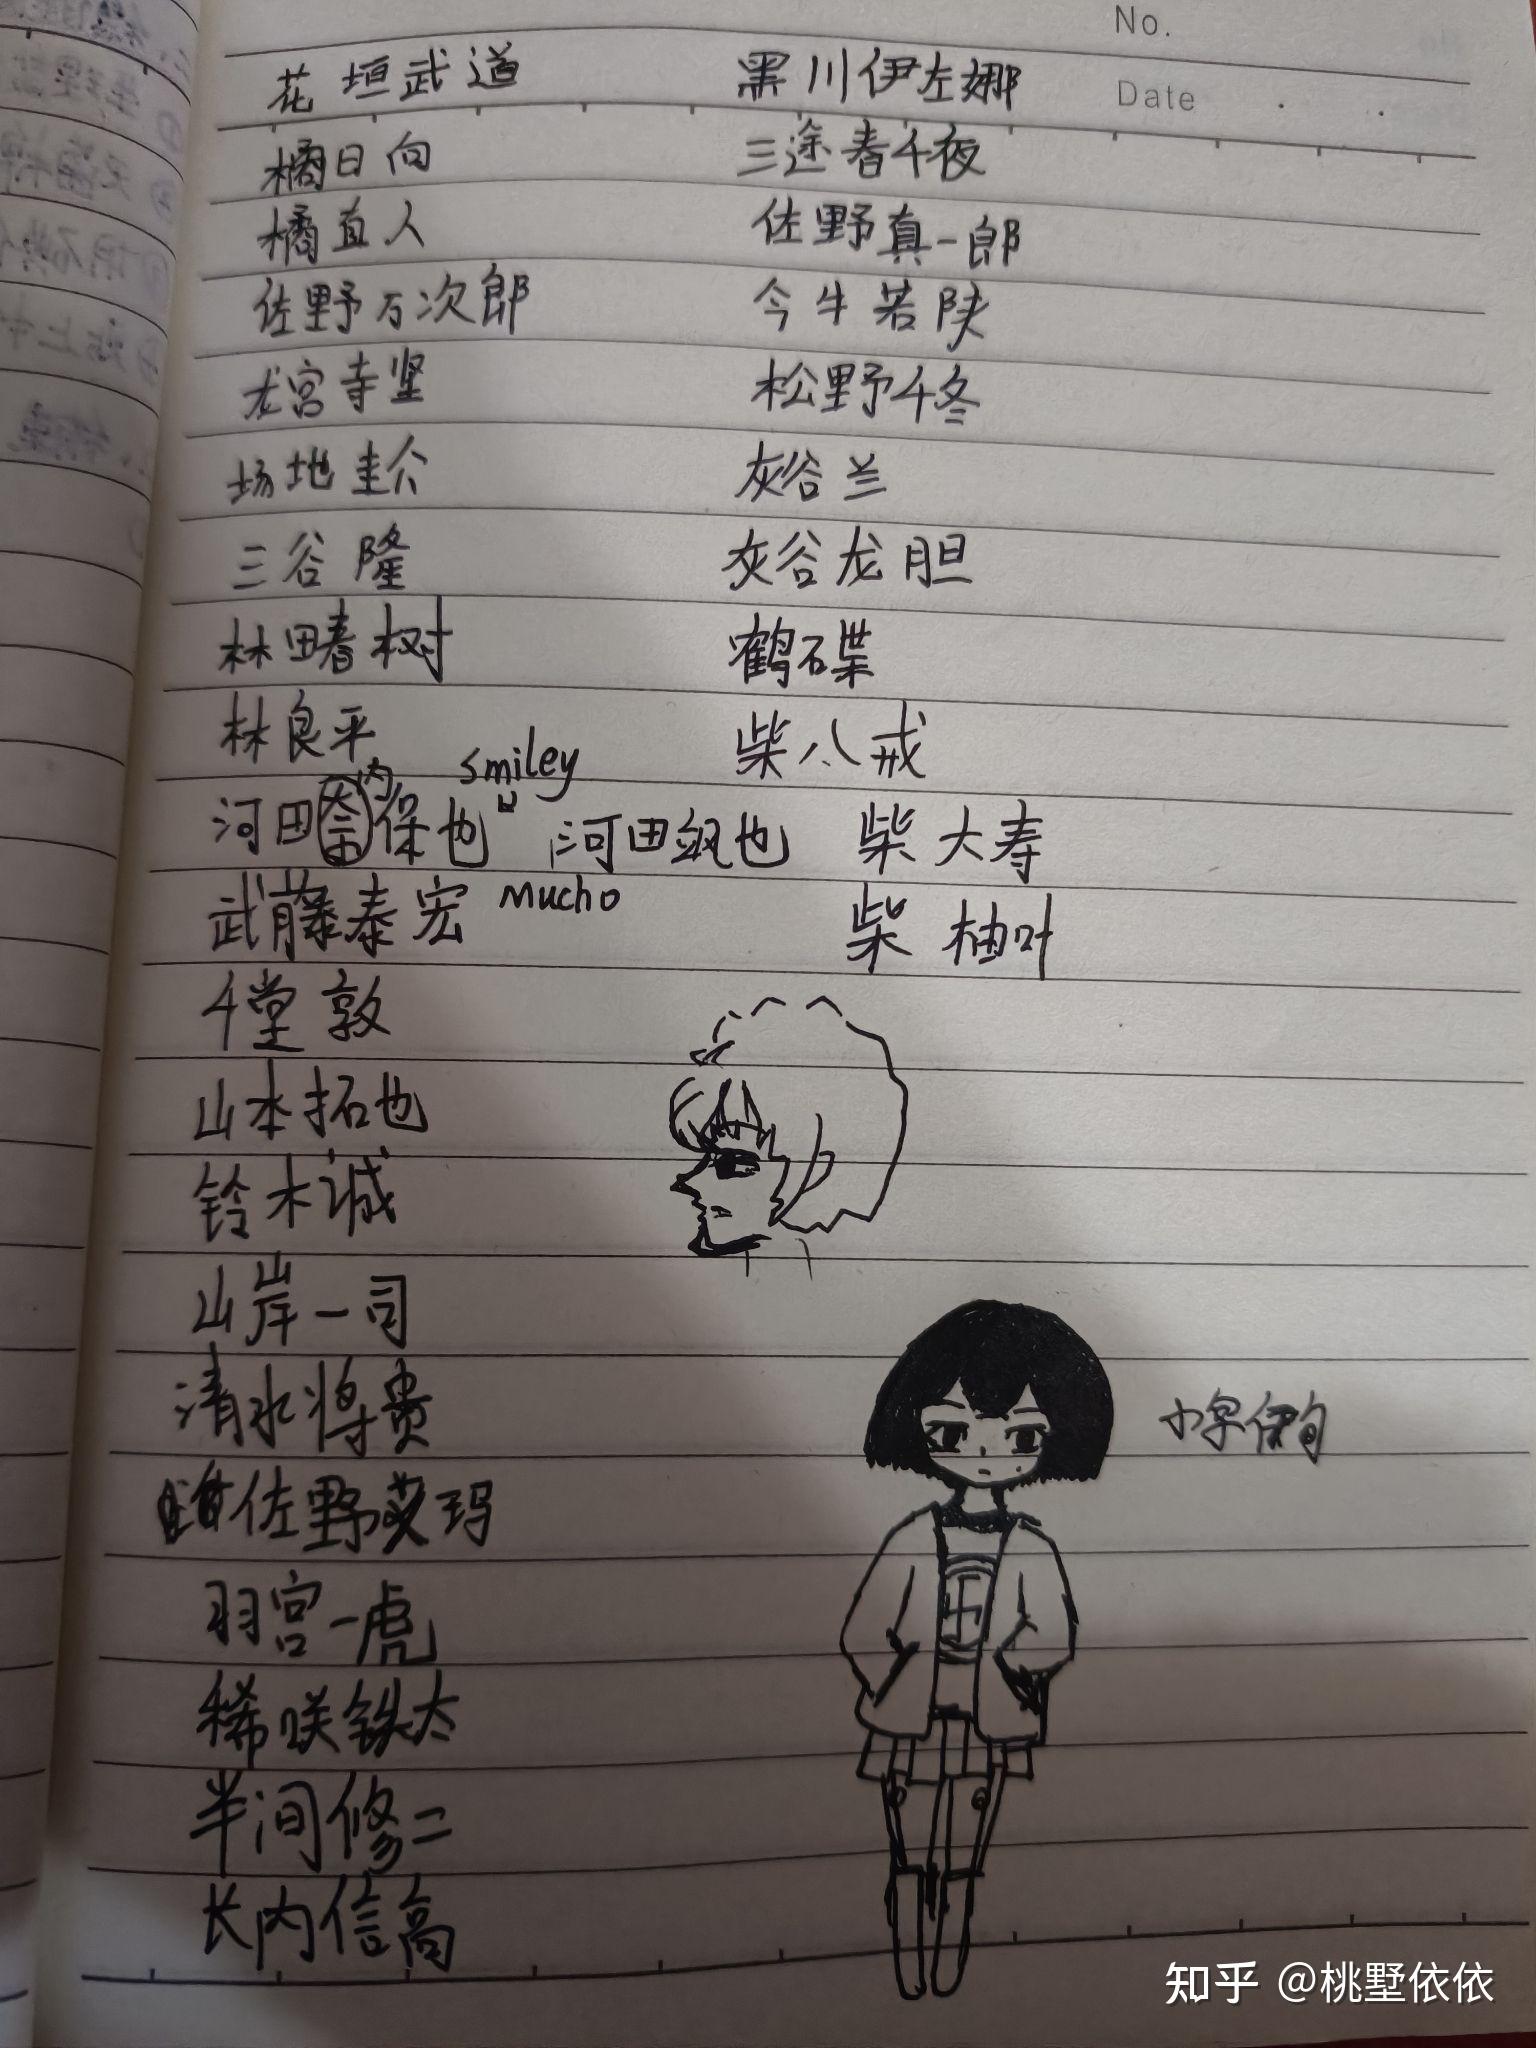 No.
Date
花垣武道 黑川伊左娜
橘日向 三途春千夜
橘直人 佐野真一郎
佐野万次郎 今牛若陕
龙宫寺坚 松野千冬
场地圭介 灰谷兰
三谷隆 灰谷龙胆
林田春树 鹤碟
林良平 柴八戒
smiley
内
河田奈保也 河田飒也 柴大寿
武藤泰宏 Mucho 柴柚叶
千堂敦
山本拓也
铃木诚
山岸一司
清水将贵
佐野艾玛
羽宫一虎
稀咲铁太
半间修二
长内信高
小宇伊旬
知乎 @桃墅依依